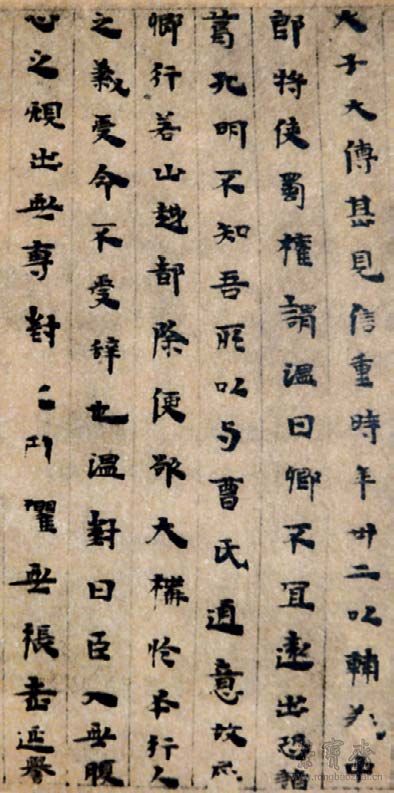 大子大傅甚見信重時年卅二以輔義中
郎將使蜀權謂溫曰卿不宜遠出恐諸
葛孔明不知吾所以与曹氏通意故屈
卿行若山越都除便欲大構於丕行人
之義受命不受辭也溫對曰臣入無腹
心之規出無專對之用懼無張老延譽
榮寶齋
www.rongbaozhai.cn